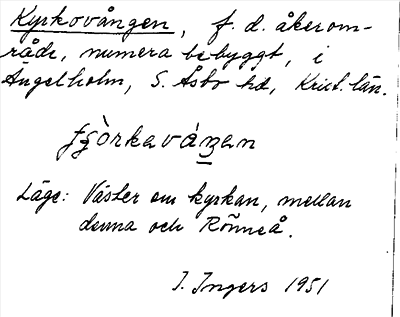 Kyrkovången, f. d. åkerom-
råde, numera bebyggt, i
Ängelholm, S. Åsbo hd, Krist. län.
Läge: Väster om kyrkan, mellan
denna och Rönneå.
I. Ingers 1951